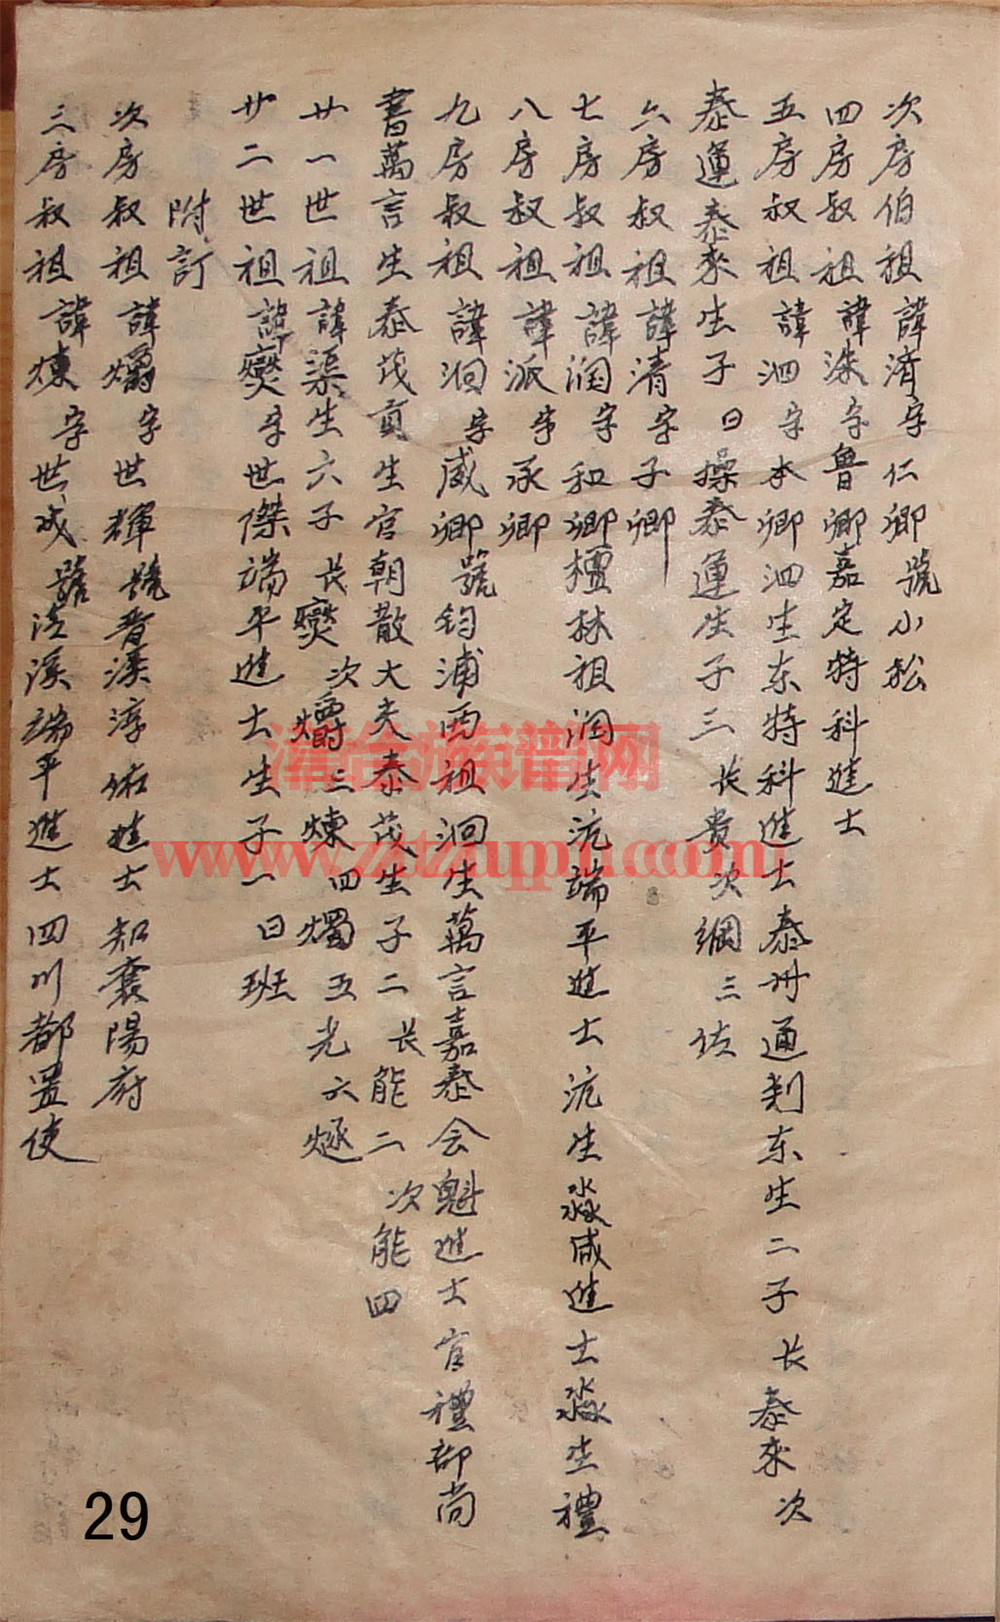 次房伯祖諱濟字仁卿號小松
四房叔祖諱洙字魯卿嘉定特科進士
五房叔祖諱泗字本卿泗生东特科進士泰州通判东生二子长泰來次
泰運泰來生子曰操泰運生子三长貴次綱三佐
六房叔祖諱清字子卿
七房叔祖諱润字和卿檀林祖润生沆端平進士沆生淼咸進士淼生禮
八房叔祖諱派字承卿
九房叔祖諱洄字咸卿號鈞浦西祖洄生萬言嘉泰会魁進士官禮部尚
書萬言生泰茂貢生官朝散大夫泰茂生子二长能二次能四
廿一世祖諱渠生六子长爕次爝三煉四燭五光六烶
廿二世祖諱爕字世傑端平進士生子一曰班
附訂
次房叔祖諱爝字世輝號晋溪淳祐進士知襄陽府
三房叔祖諱煉字世成號清溪端平進士四川都置使
漳台族谱网
www.ztzupu.com
29